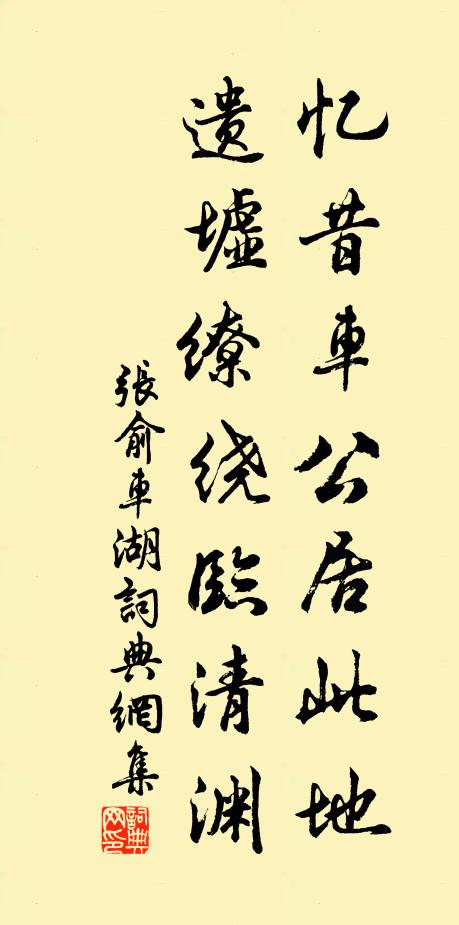 忆昔車公居此地
遗墟缭绕臨清渊
張俞車湖詞典網集
詞典网印